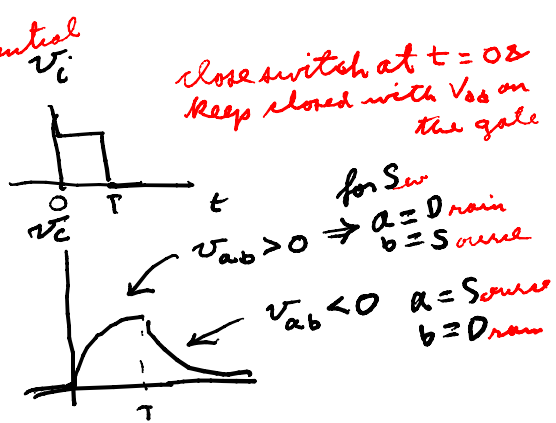 v_i
close switch at t = 0 &
keep closed with V_DD on
the gate
0 T t
for Sw
v_c
v_ab > 0 ⇒ a = Drain
b = Source
v_ab < 0 a = Source
b = Drain
T